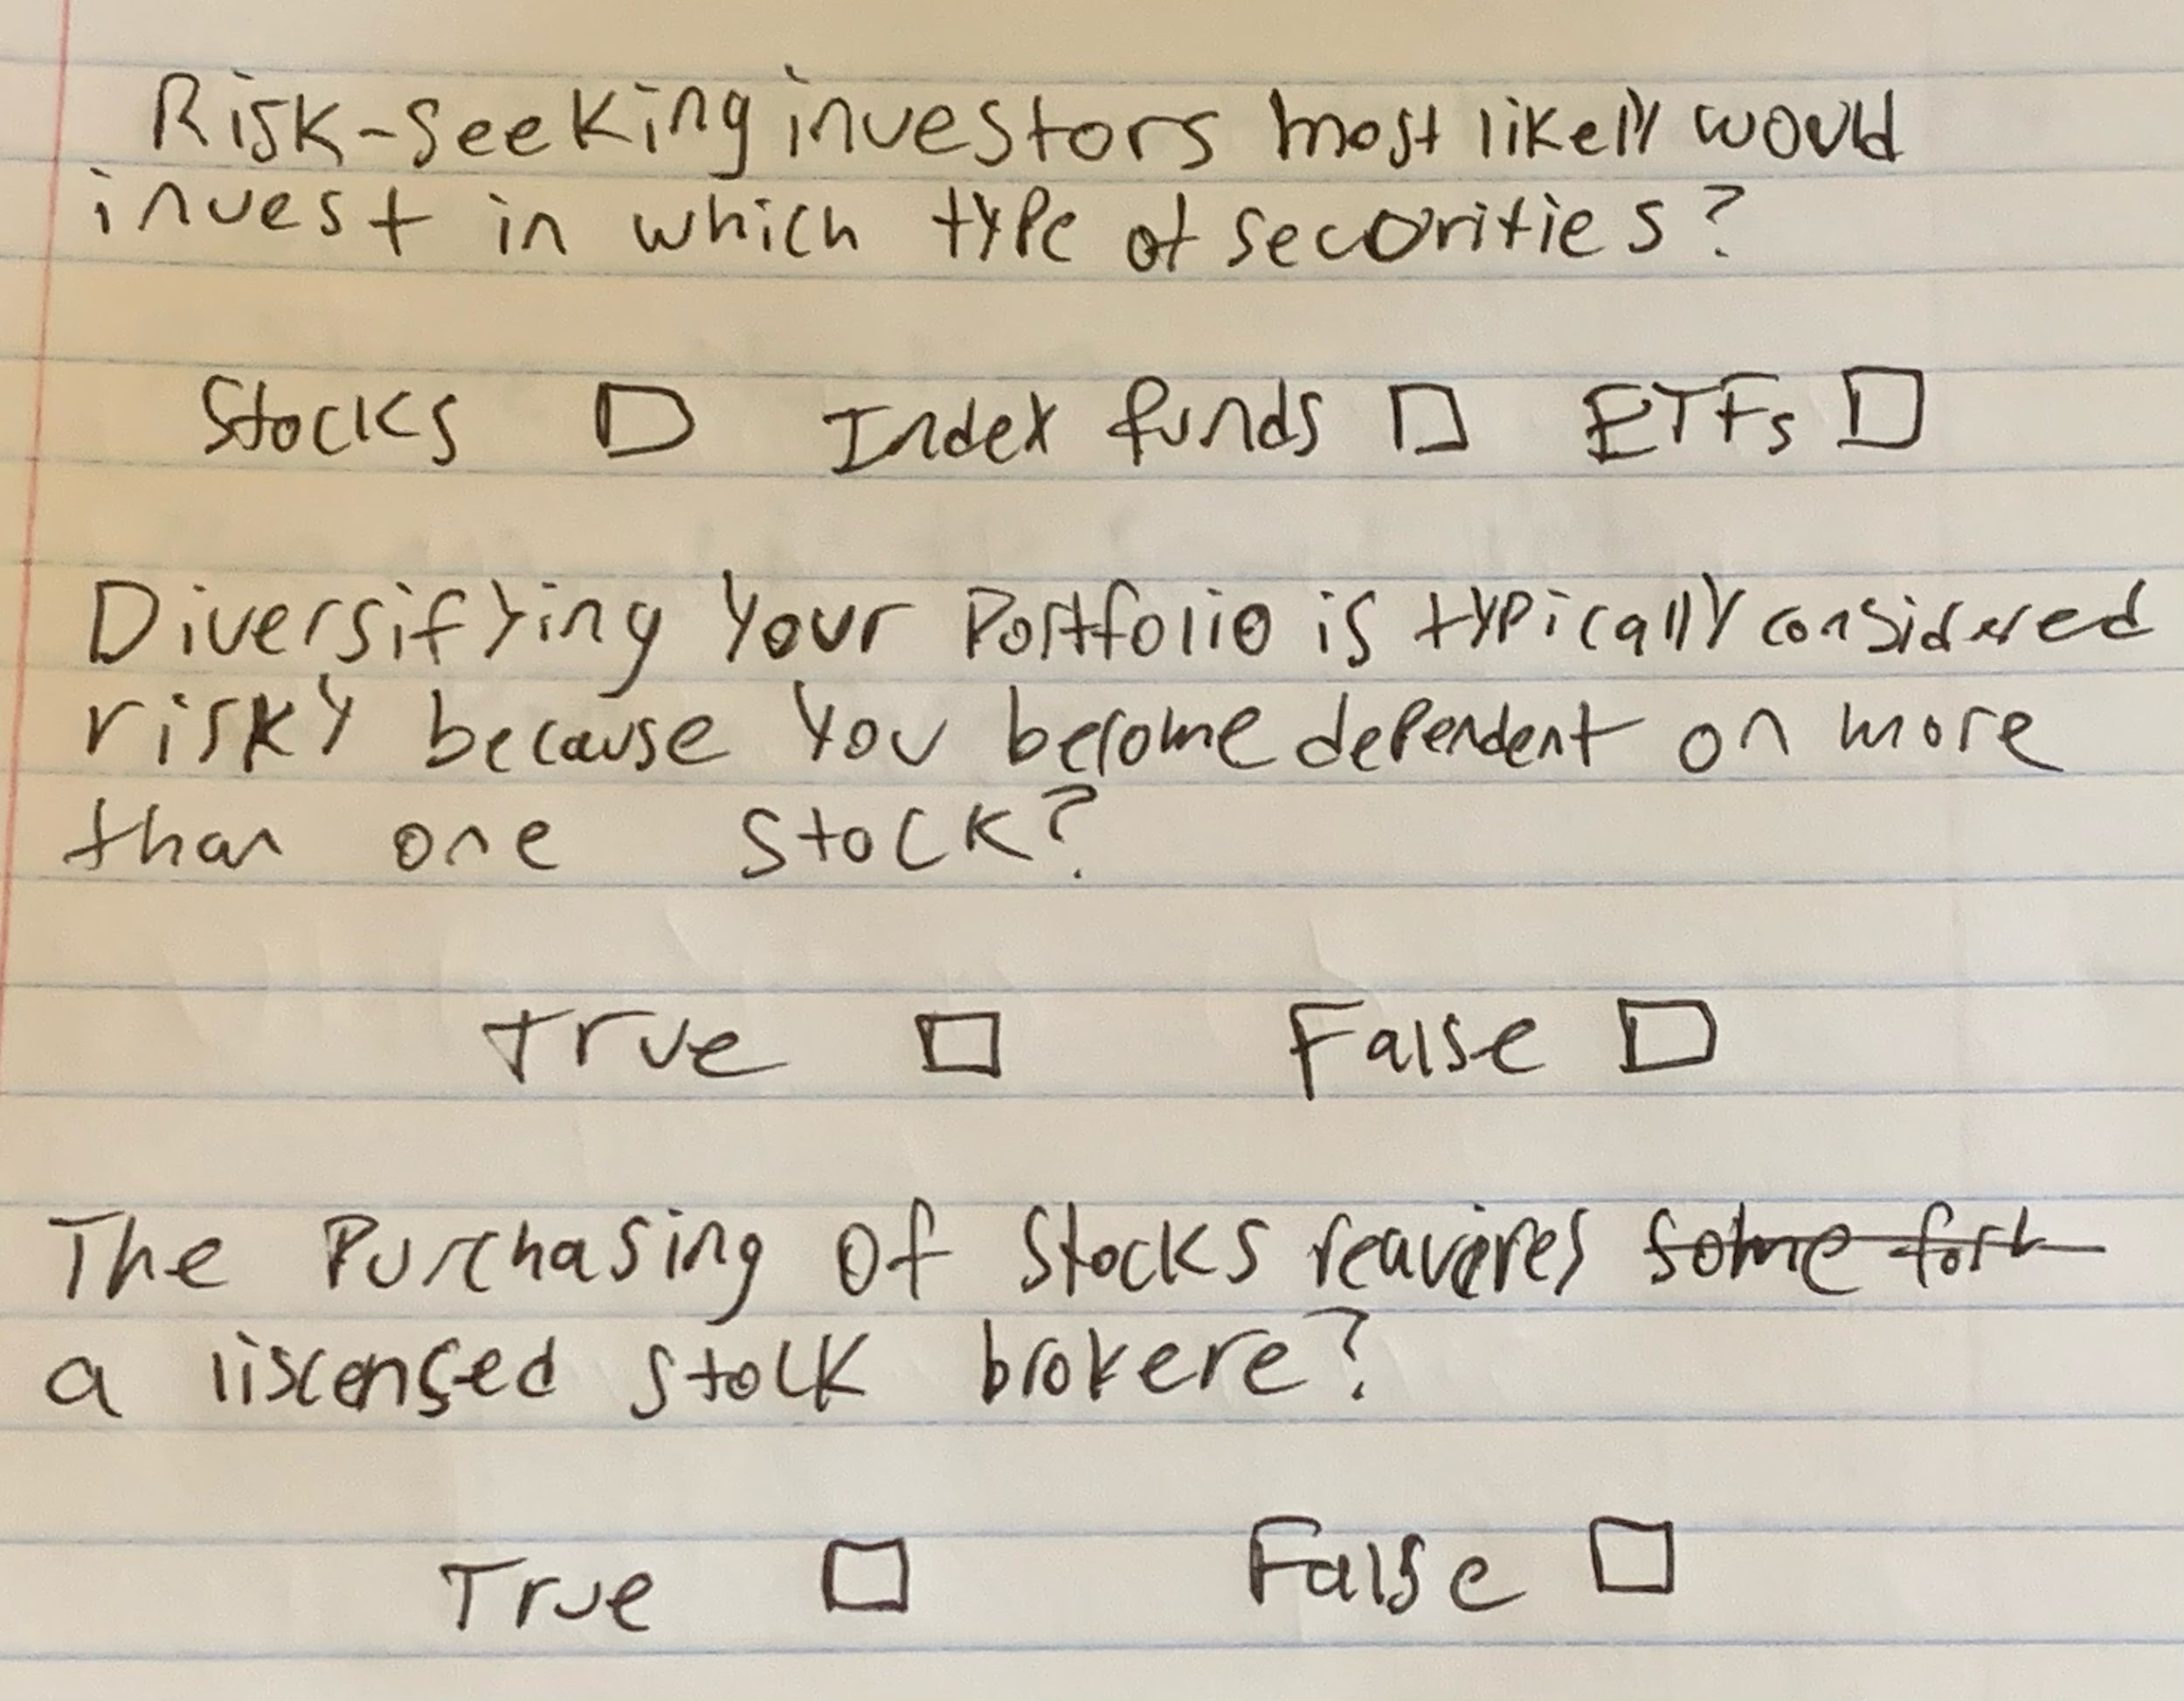 Risk-seeking investors most likely would
invest in which type of securities?
Stocks Index funds ETFs
Diversifying Your Portfolio is typically considered
risky because You become dependent on more
than one stock?
True False
The Purchasing of Stocks requires some
a liscensed stock brokere?
True False